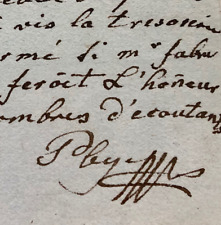 vis la tresorie
rmé si mr fabre
feroit L'hoñeur
ombres d'ecoutan